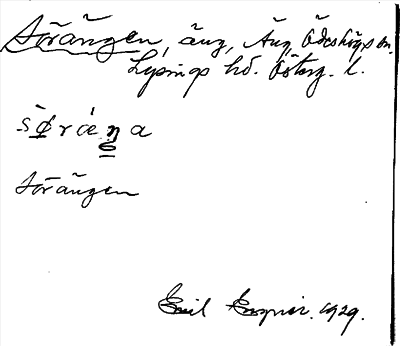 Sörängen, äng, Äng, Ödeshögs sn.
Lysings hd. Österg. l.
sǿrǽŋa
Sörängen
Emil 1929.